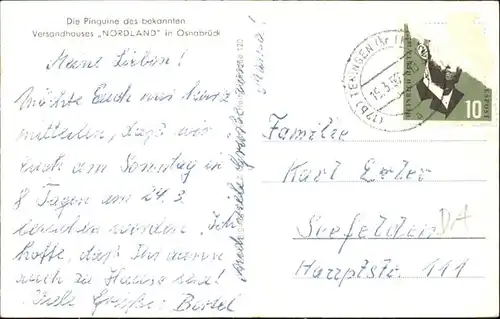 Die Pinguine des bekannten
Versandhauses „NORDLAND" in Osnabrück
Meine Lieben!
Möchte Euch nur kurz
mitteilen, daß wir
Euch am Sonntag in
8 Tagen am 24.3.
besuchen würden. Ich
hoffe, daß Ihr
auch zu Hause seid!
Viele Grüße Bärbel
Auch viele Grüße von
Mama!
(17b) TENINGEN
15.3.
10
Familie
Karl Erler
Seefelden
Hauptstr. 111